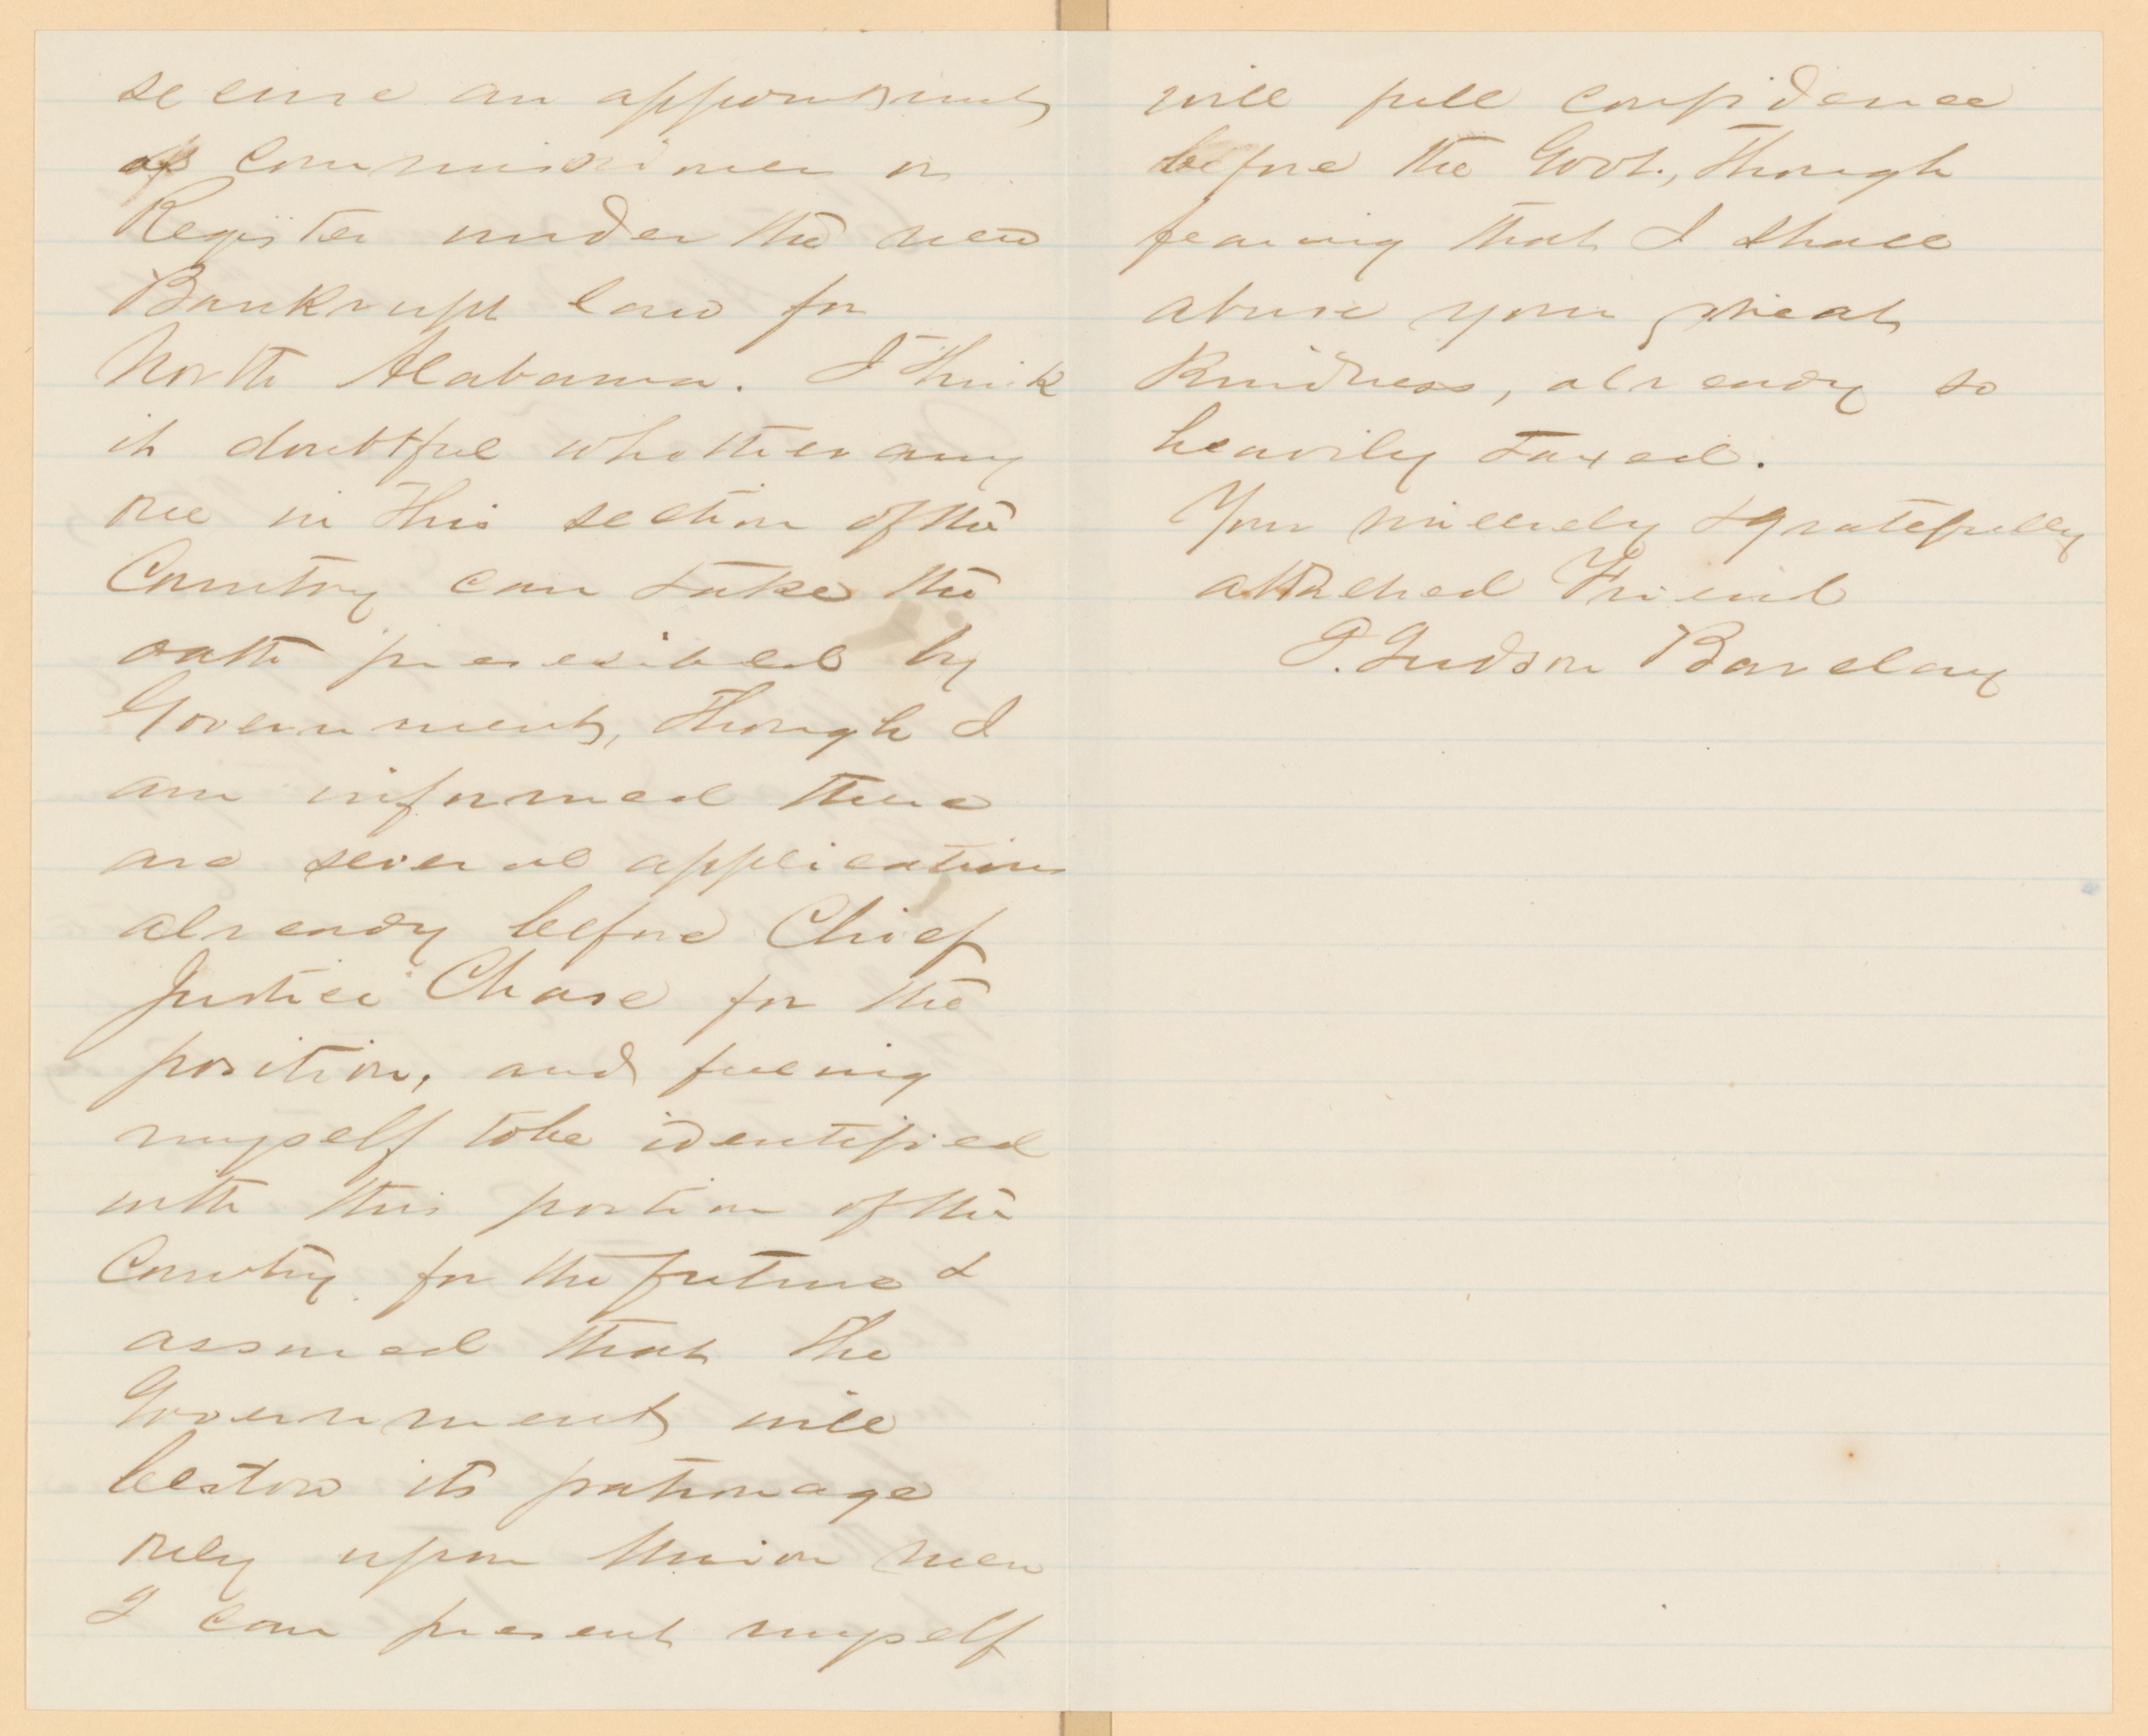 secure an appointment
as Commissioner or
Register under the new
Bankrupt law for
North Alabama. I think
it doubtful whether any
one in this section of the
Country can take the
oath prescribed by
Government, though I
am informed there
are several applications
already before Chief
Justice Chase for the
position, and feeling
myself to be identified
with this portion of the
Country for the future &
assured that the
Government will
bestow its patronage
only upon Union men
I can present myself
with full confidence
before the Govt., though
fearing that I shall
abuse your great
Kindness, already so
heavily taxed.
Your sincerely & gratefully
attached Friend
J. Judson Barclay